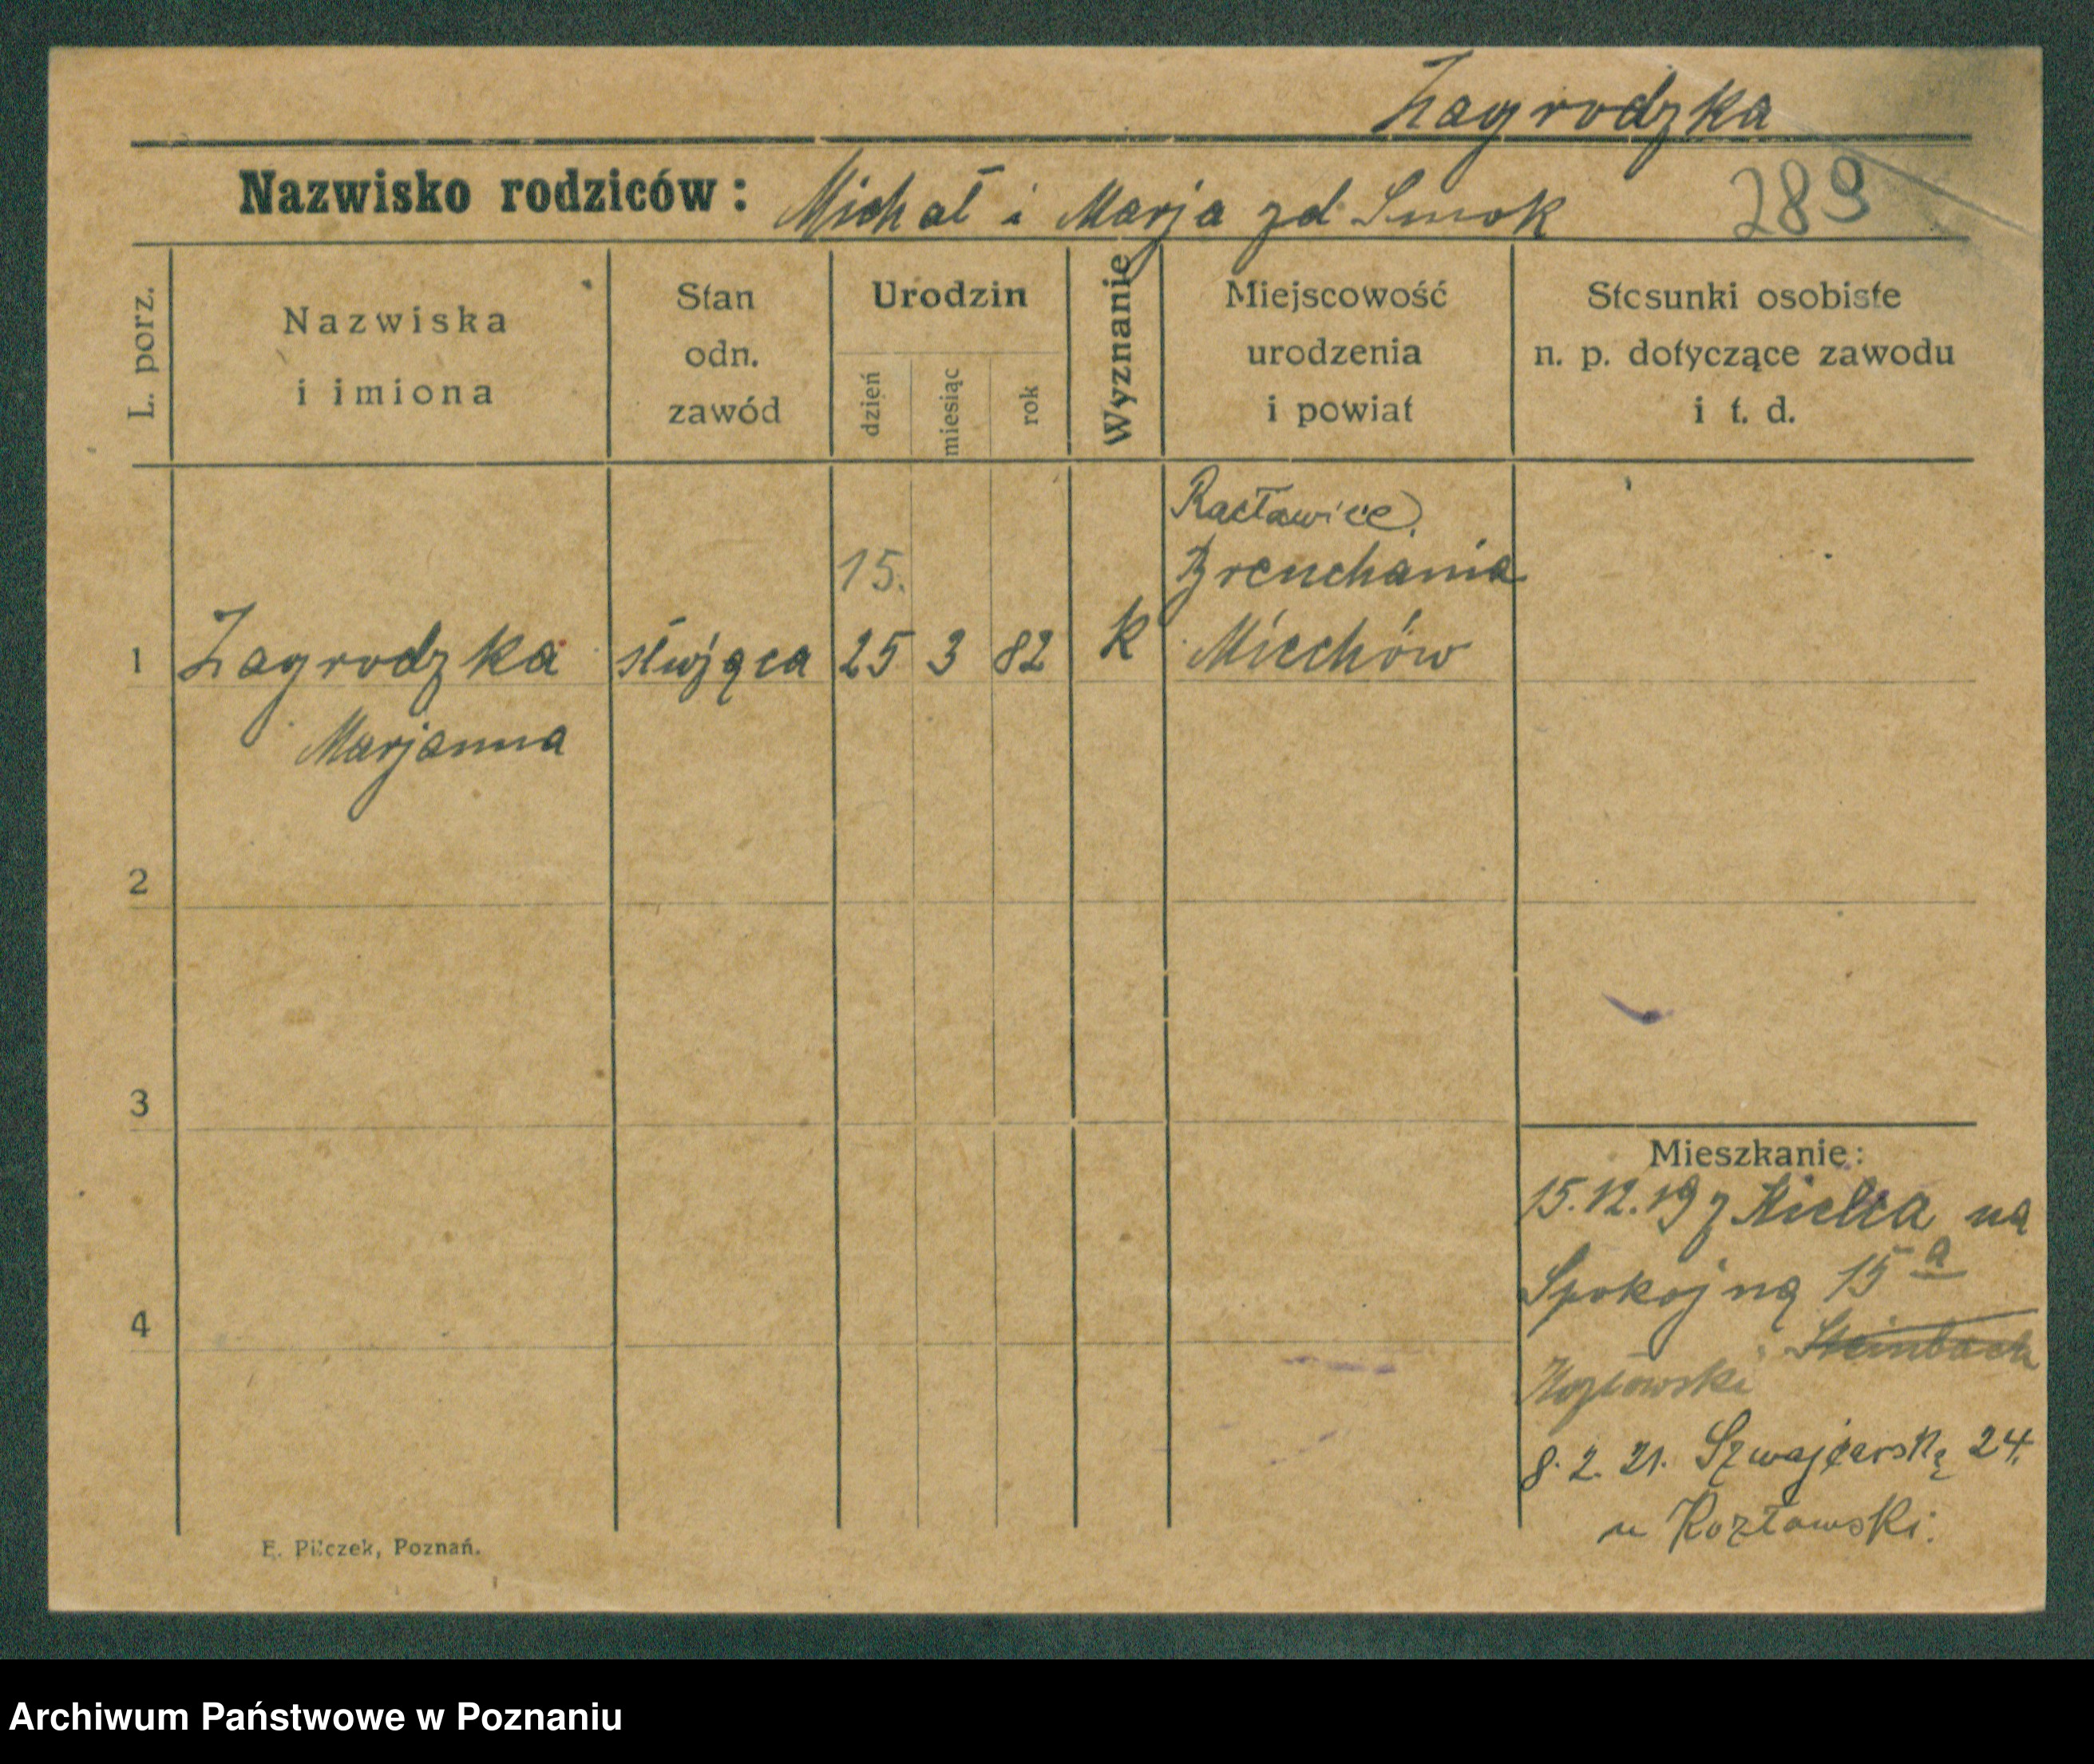 Zagrodzka
Nazwisko rodziców: Michał i Marja zd Smok
289
L. porz.
Nazwiska
i imiona
Stan
odn.
zawód
Urodzin
dzień
miesiąc
rok
Wyznanie
Miejscowość
urodzenia
i powiat
Stosunki osobiste
n. p. dotyczące zawodu
i t. d.
Racławice
15. Brenchania
1 Zagrodzka służąca 25 3 82 k Miechów
Marjanna
2
3
Mieszkanie:
15.12.19 z Kielca na
Spokojną 15 a
4
Steinbach
Kozłowski
8. 2. 21. Szwajcarską 24.
u Kozłowski.
E. Pilczek, Poznań.
Archiwum Państwowe w Poznaniu